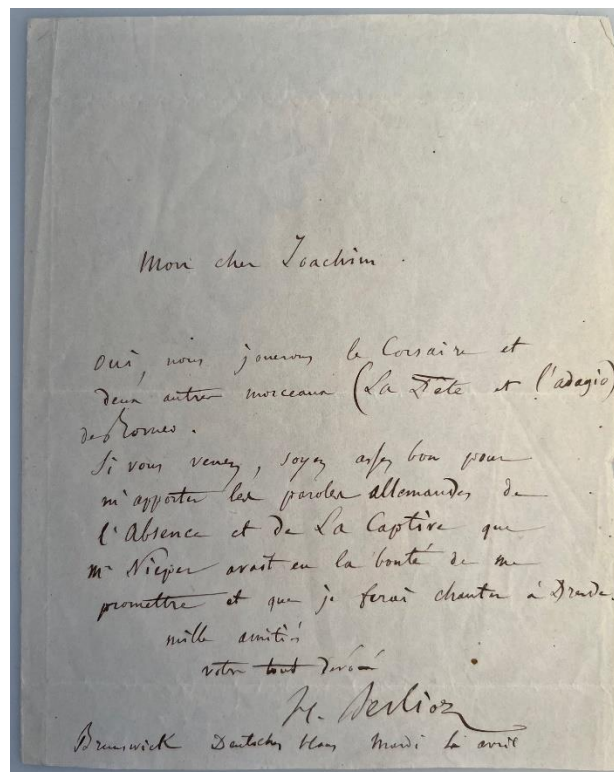 Mon cher Joachim.
Oui, nous jouerons le Corsaire et
deux autres morceaux (La Fête et l'adagio)
de Romeo.
Si vous venez, soyez assez bon pour
m'apporter les paroles allemandes de
l'Absence et de La Captive que
Mr Nieper avait eu la bonté de me
promettre et que je ferai chanter à Dresde.
mille amitiés
votre tout dévoué
H. Berlioz
Brunswick Deutsches Haus Mardi avril